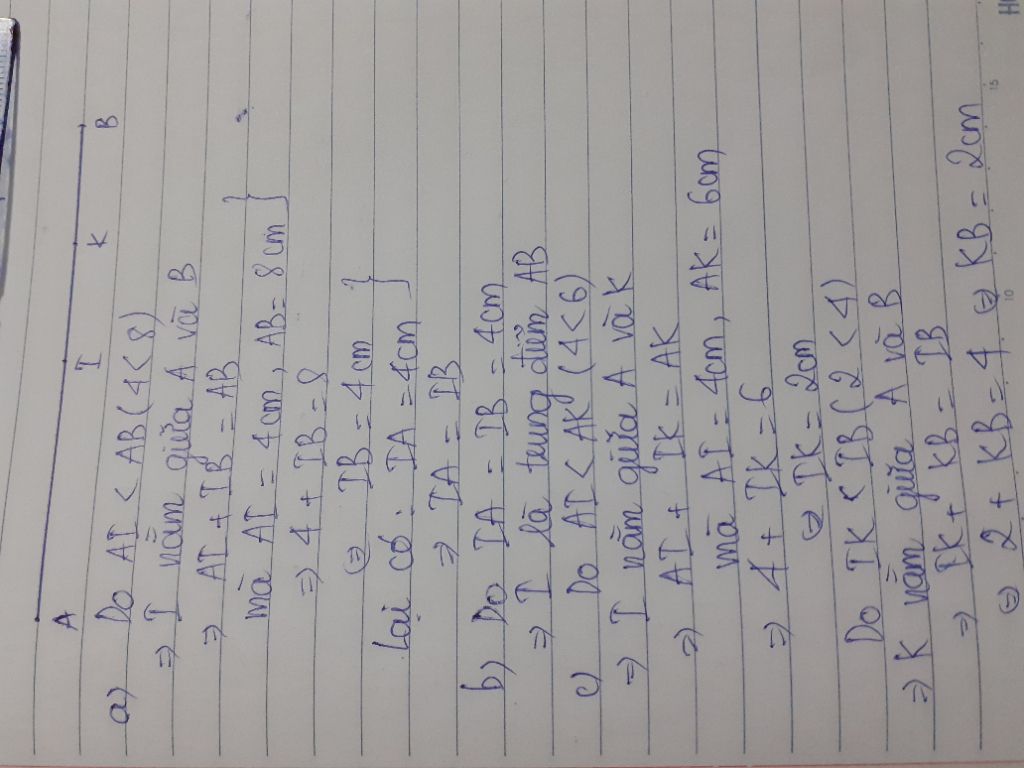 A I K B
a) Do AI < AB (4 < 8)
⇒ I nằm giữa A và B
⇒ AI + IB = AB
mà AI = 4cm, AB = 8cm }
⇒ 4 + IB = 8
⇔ IB = 4cm }
Lại có: IA = 4cm }
⇒ IA = IB
b) Do IA = IB = 4cm
⇒ I là trung điểm AB
c) Do AI < AK (4 < 6)
⇒ I nằm giữa A và K
⇒ AI + IK = AK
mà AI = 4cm, AK = 6cm
⇒ 4 + IK = 6
⇔ IK = 2cm
Do IK < IB (2 < 4)
⇒ K nằm giữa A và B
⇒ IK + KB = IB
⇔ 2 + KB = 4 ⇔ KB = 2cm
10 15